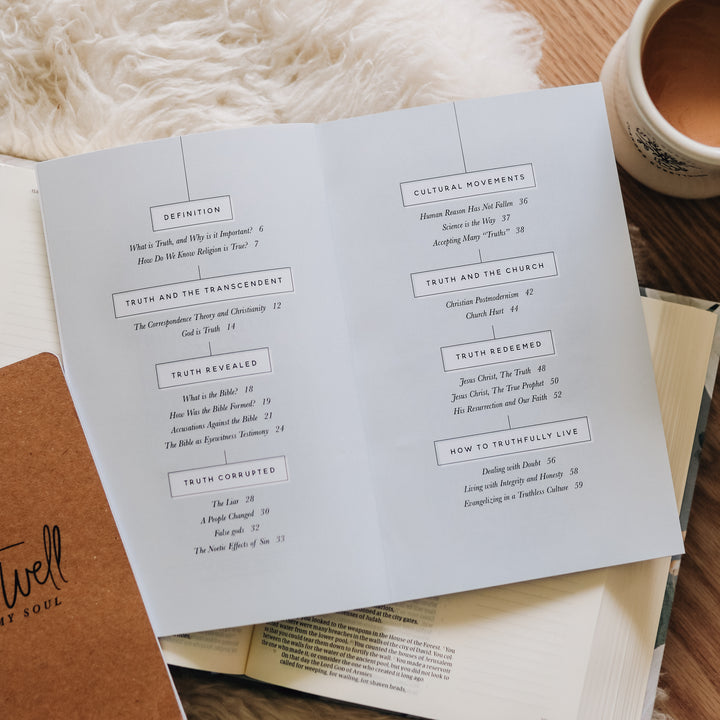 DEFINITION
What is Truth, and Why is it Important? 6
How Do We Know Religion is True? 7
TRUTH AND THE TRANSCENDENT
The Correspondence Theory and Christianity 12
God is Truth 14
TRUTH REVEALED
What is the Bible? 18
How Was the Bible Formed? 19
Accusations Against the Bible 21
The Bible as Eyewitness Testimony 24
TRUTH CORRUPTED
The Liar 28
A People Changed 30
False gods 32
The Noetic Effects of Sin 33
CULTURAL MOVEMENTS
Human Reason Has Not Fallen 36
Science is the Way 37
Accepting Many “Truths” 38
TRUTH AND THE CHURCH
Christian Postmodernism 42
Church Hurt 44
TRUTH REDEEMED
Jesus Christ, The Truth 48
Jesus Christ, The True Prophet 50
His Resurrection and Our Faith 52
HOW TO TRUTHFULLY LIVE
Dealing with Doubt 56
Living with Integrity and Honesty 58
Evangelizing in a Truthless Culture 59
well
MY SOUL
stationed at the city gates.
of Judah.
you looked to the weapons in the House of the Forest. You
there were many breaches in the walls of the city of David. You col
water from the lower pool. You counted the houses of Jerusalem
that you could tear them down to fortify the wall. You made a reservoir
between the walls for the water of the ancient pool, but you did not look to
the one who made it, or consider the one who created it long ago.
On that day the Lord God of Armies
called for weeping, for wailing, for shaven heads,